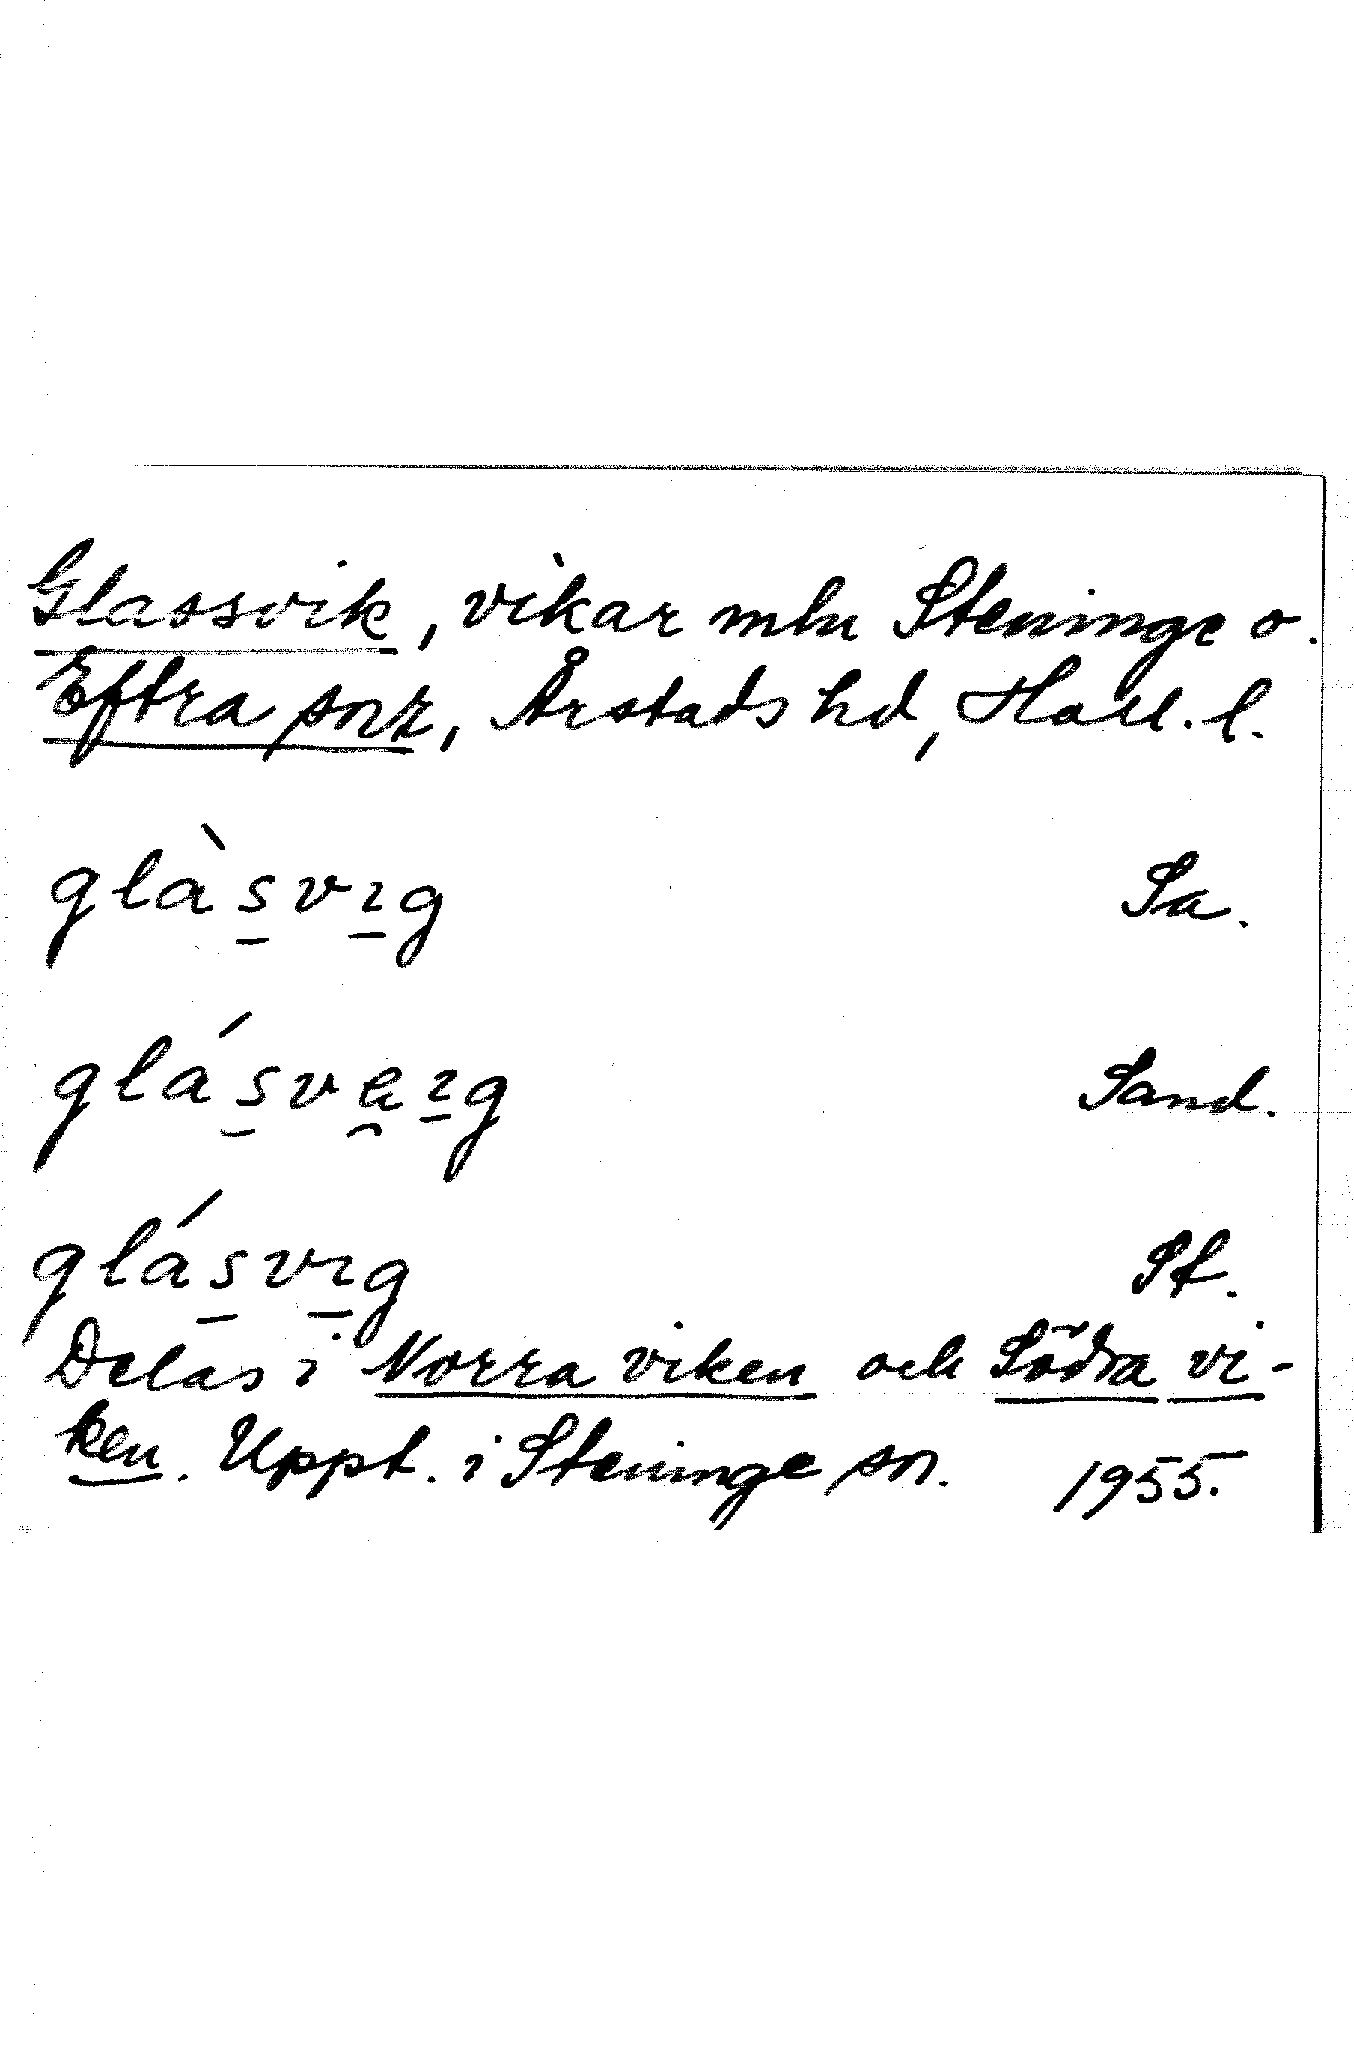 Glassvik, vikar mln Steninge o.
Eftra snr, Årstads hd, Hall. l.
glàs̱vı̱g Sa.
glás̱ve̯ı̱g Sand.
glás̱vı̱g St.
Delas i Norra viken och Södra vi-
ken. Uppt. i Steninge sn. 1955.